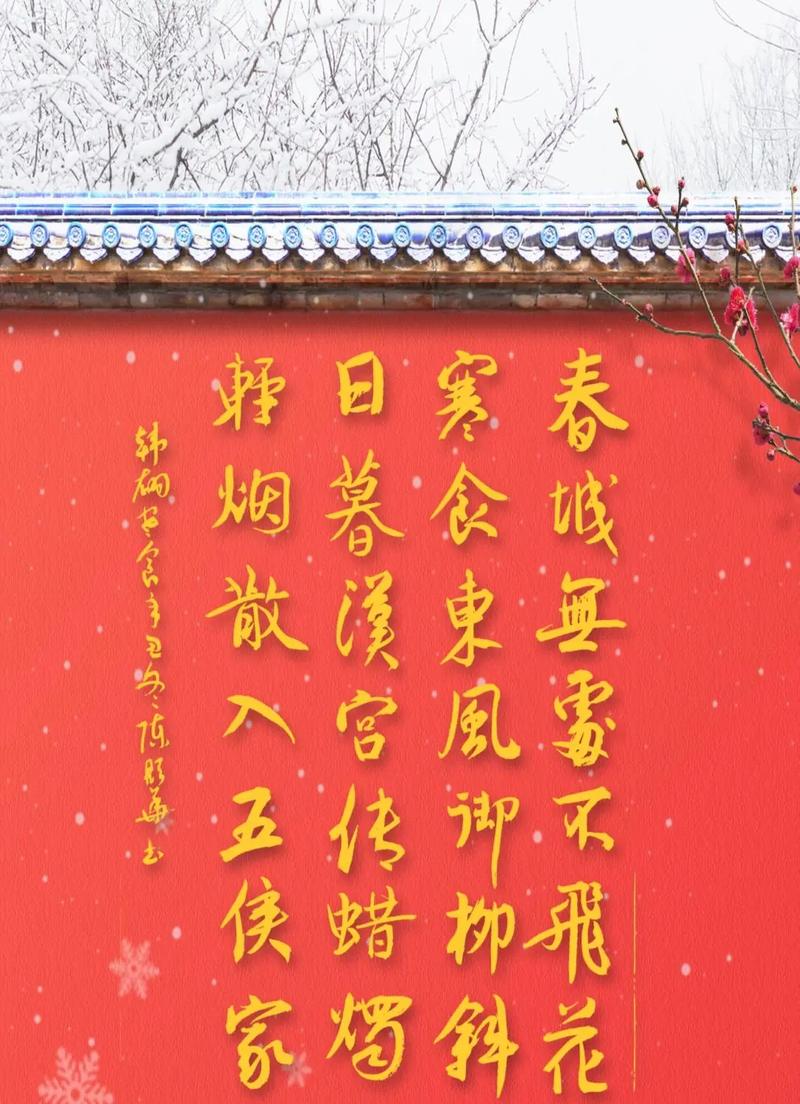 春城無處不飛花
寒食東風御柳斜
日暮漢宮传蜡燭
輕烟散入五侯家
韩翃寒食辛丑冬陈